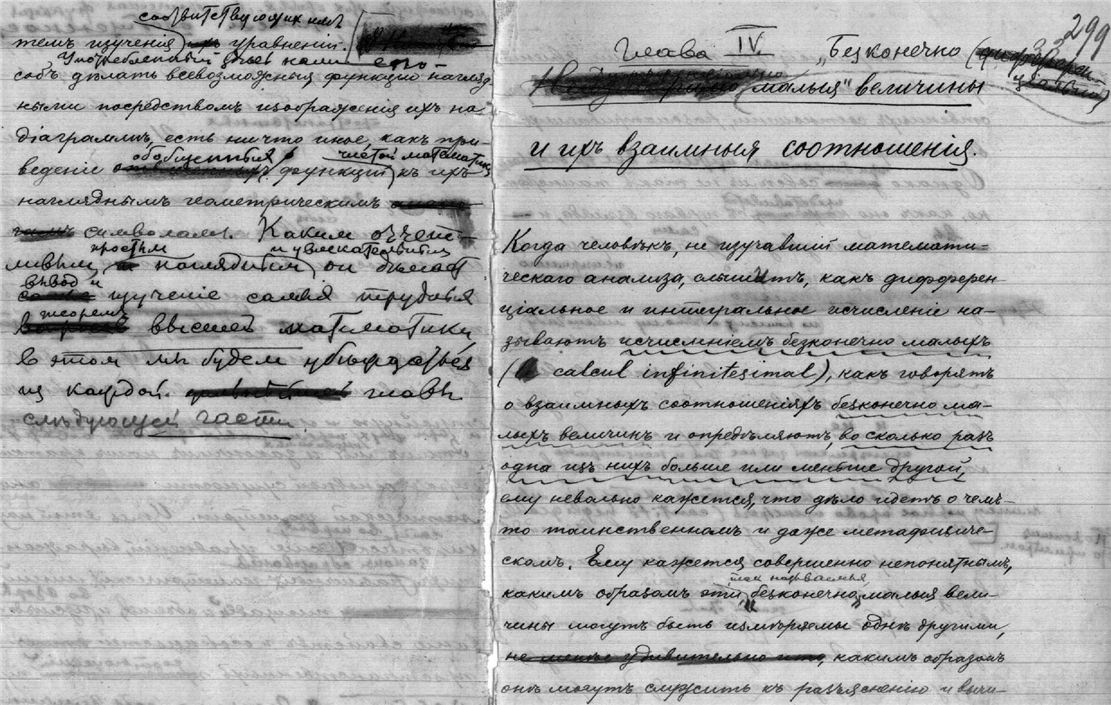 соотвѣтствующихъ имъ
темъ изученія уравненій.
Употребленный здѣсь нами спо-
собъ дѣлать всевозможныя функціи нагляд-
ными посредствомъ изображенія ихъ на
діаграммѣ, есть ничто иное, какъ при-
обобщенныхъ чистой математики
веденіе функцій къ ихъ
нагляднымъ геометрическимъ
символамъ. Какимъ отчет-
простымъ и увлекательнымъ
ливымъ, нагляднымъ онъ дѣлаетъ
выводъ и
изученіе самыя трудныя
теоремъ
высшей математики
въ этомъ мы будемъ убѣждаться
изъ каждой главы
слѣдующей части.
299
Глава IV. „Безконечно
малыя" величины
и ихъ взаимныя соотношенія.
Когда человѣкъ, не изучавшій математи-
ческаго анализа, слышитъ, какъ дифферен-
ціальное и интегральное исчисленіе на-
зываютъ исчисленіемъ безконечно малыхъ
(calcul infinitesimal), какъ говорятъ
о взаимныхъ соотношеніяхъ безконечно ма-
лыхъ величинъ и опредѣляютъ, во сколько разъ
одна изъ нихъ больше или меньше другой,
ему невольно кажется, что дѣло идетъ о чемъ-
то таинственномъ и даже метафизиче-
скомъ. Ему кажется совершенно непонятнымъ,
такъ называемыя
какимъ образомъ эти „безконечно малыя вели-
чины могутъ быть измѣряемы однѣ другими,
не менѣе удивительно что, какимъ образомъ
онѣ могутъ служить къ разъясненію и вычи-